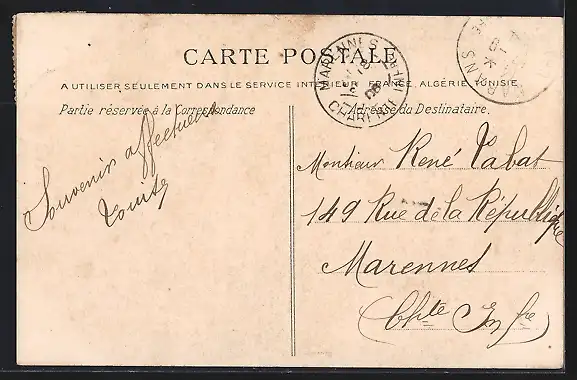 CARTE POSTALE
A UTILISER SEULEMENT DANS LE SERVICE INTÉRIEUR, FRANCE, ALGÉRIE, TUNISIE
Partie réservée à la Correspondance
Adresse du Destinataire.
MARENNES
CHAR. INFRE
Souvenir affectueux
Monsieur René Tabat
149 Rue de la République
Marennes
Chte Infre